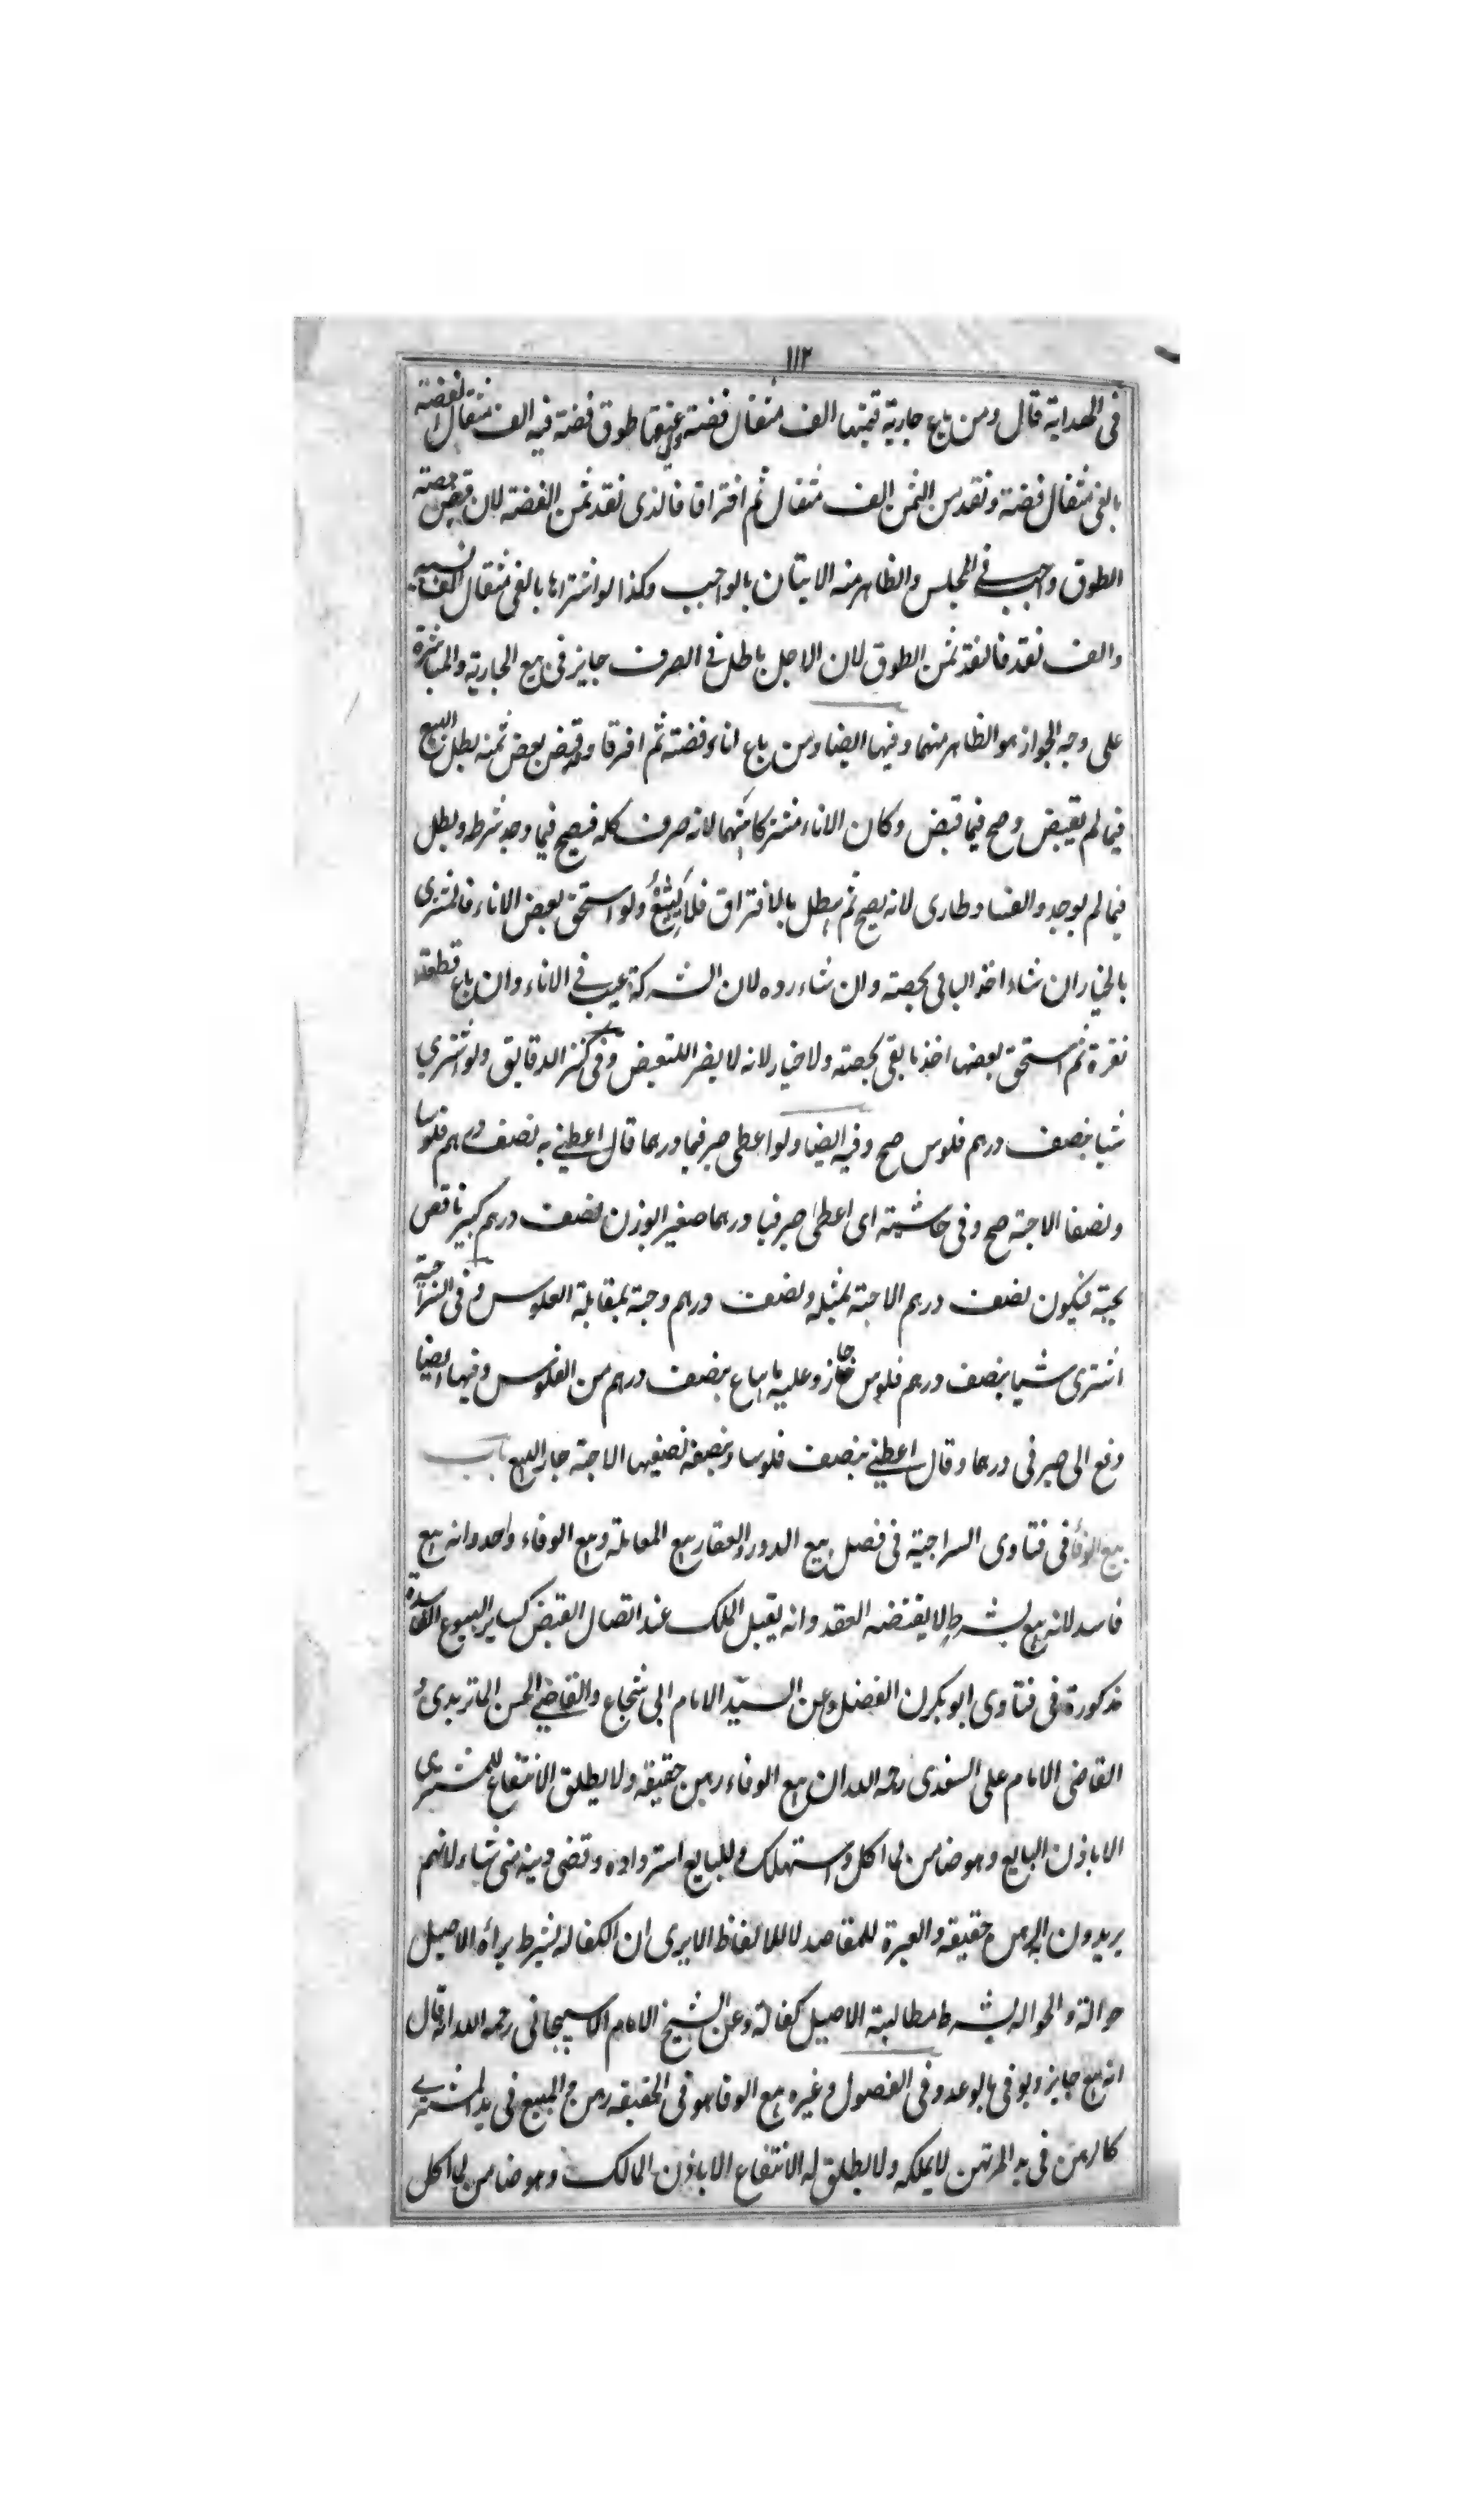 ١١٢
فى الهداية قال ومن باع جارية قيمتها الف مثقال فضة وفى عنقها طوق فضة فيه الف مثقال فضة
بالفى مثقال فضة ونقد من الثمن الف مثقال ثم افترقا فالذى نقد ثمن الفضة لان قبض حصة
الطوق واجب فى المجلس والظاهر منه الاتيان بالواجب وكذا لو اشتراها بالفى مثقال الف نسية
والف نقد فالنقد ثمن الطوق لان الاجل باطل فى الصرف جايز فى بيع الجارية والمباشرة
على وجه الجواز هو الظاهر منهما وفيها ايضا ومن باع اناء فضة ثم افترقا وقد قبض بعض ثمنه بطل البيع
فيما لم يقبض وصح فيما قبض وكان الاناء مشتركا بينهما لانه صرف كله فيصح فيما وجد شرطه وبطل
فيما لم يوجد والفساد طارى لانه يصح ثم يبطل بالافتراق فلا يشيع ولو استحق بعض الاناء فالمشترى
بالخيار ان شاء اخذ الباقى بحصته وان شاء رده لان الشركة عيب فى الاناء وان باع قطعة
نقرة ثم استحق بعضها اخذ ما بقى بحصته ولا خيار لانه لا يضر التبعيض وفى كنز الدقايق ولو اشترى
شيا بنصف درهم فلوس صح وفيه ايضا ولو اعطى صيرفيا درهما قال اعطنى به نصف درهم فلوسا
ونصفا الا حبة صح وفى حاشيته اى اعطى صيرفيا درهما صغير الوزن نصف درهم كبير ناقص
بحبة فيكون نصف درهم الا حبة بمثله ونصف درهم وحبة بمقابلة الفلوس وفى السراجية
اشترى شيا بنصف درهم فلوس جاز وعليه ما يباع بنصف درهم من الفلوس وفيها ايضا
دفع الى صيرفى درهما وقال اعطنى بنصف فلوسا وبنصفه نصفيها الا حبة جاز البيع باب
بيع الوفاء فى فتاوى السراجية فى فصل بيع الدور والعقار بيع المعاملة وبيع الوفاء واحد وانه بيع
فاسد لانه بيع بشرط لا يقتضه العقد وانه يقبل الملك عند اتصال القبض كساير البيوع الفاسدة
مذكورة فى فتاوى ابو بكر بن الفضل وعن السيد الامام ابى شجاع والقاضى الحسن الماتريدى و
القاضى الامام على السغدى رحمه الله ان بيع الوفاء رهن حقيقة ولا يطلق الانتفاع للمشترى
الا باذن البايع وهو ضامن لما اكل واستهلك وللبايع استرداده وقضى دينه متى شاء لانهم
يريدون به الرهن حقيقة والعبرة للمقاصد لا للالفاظ الا يرى ان الكفالة بشرط براة الاصيل
حوالة والحوالة بشرط مطالبة الاصيل كفالة وعن الشيخ الامام الاسبيجابى رحمه الله انه قال
انه بيع جايز ويوفى بالوعد وفى الفصول وغيره بيع الوفا هو فى الحقيقة رهن والمبيع فى يد المشترى
كالرهن فى يد المرتهن لا يملكه ولا يطلق له الانتفاع الا باذن المالك وهو ضامن لما اكل